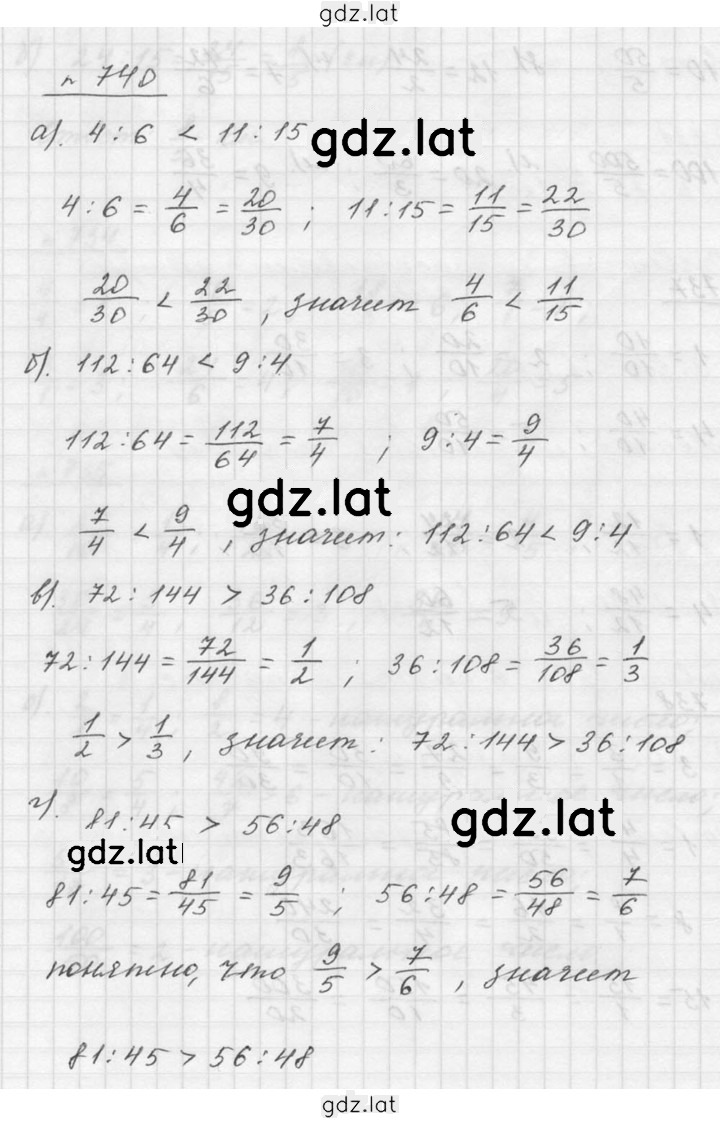 gdz.lat
n 740
а). 4 : 6 < 11 : 15
gdz.lat
4 : 6 = 4/6 = 20/30 ; 11 : 15 = 11/15 = 22/30
20/30 < 22/30 , значит 4/6 < 11/15
б). 112 : 64 < 9 : 4
112 : 64 = 112/64 = 7/4 ; 9 : 4 = 9/4
gdz.lat
7/4 < 9/4 , значит: 112 : 64 < 9 : 4
в). 72 : 144 > 36 : 108
72 : 144 = 72/144 = 1/2 ; 36 : 108 = 36/108 = 1/3
1/2 > 1/3 , значит: 72 : 144 > 36 : 108
г). 81 : 45 > 56 : 48
gdz.lat
gdz.lat
81 : 45 = 81/45 = 9/5 ; 56 : 48 = 56/48 = 7/6
понятно, что 9/5 > 7/6 , значит
81 : 45 > 56 : 48
gdz.lat